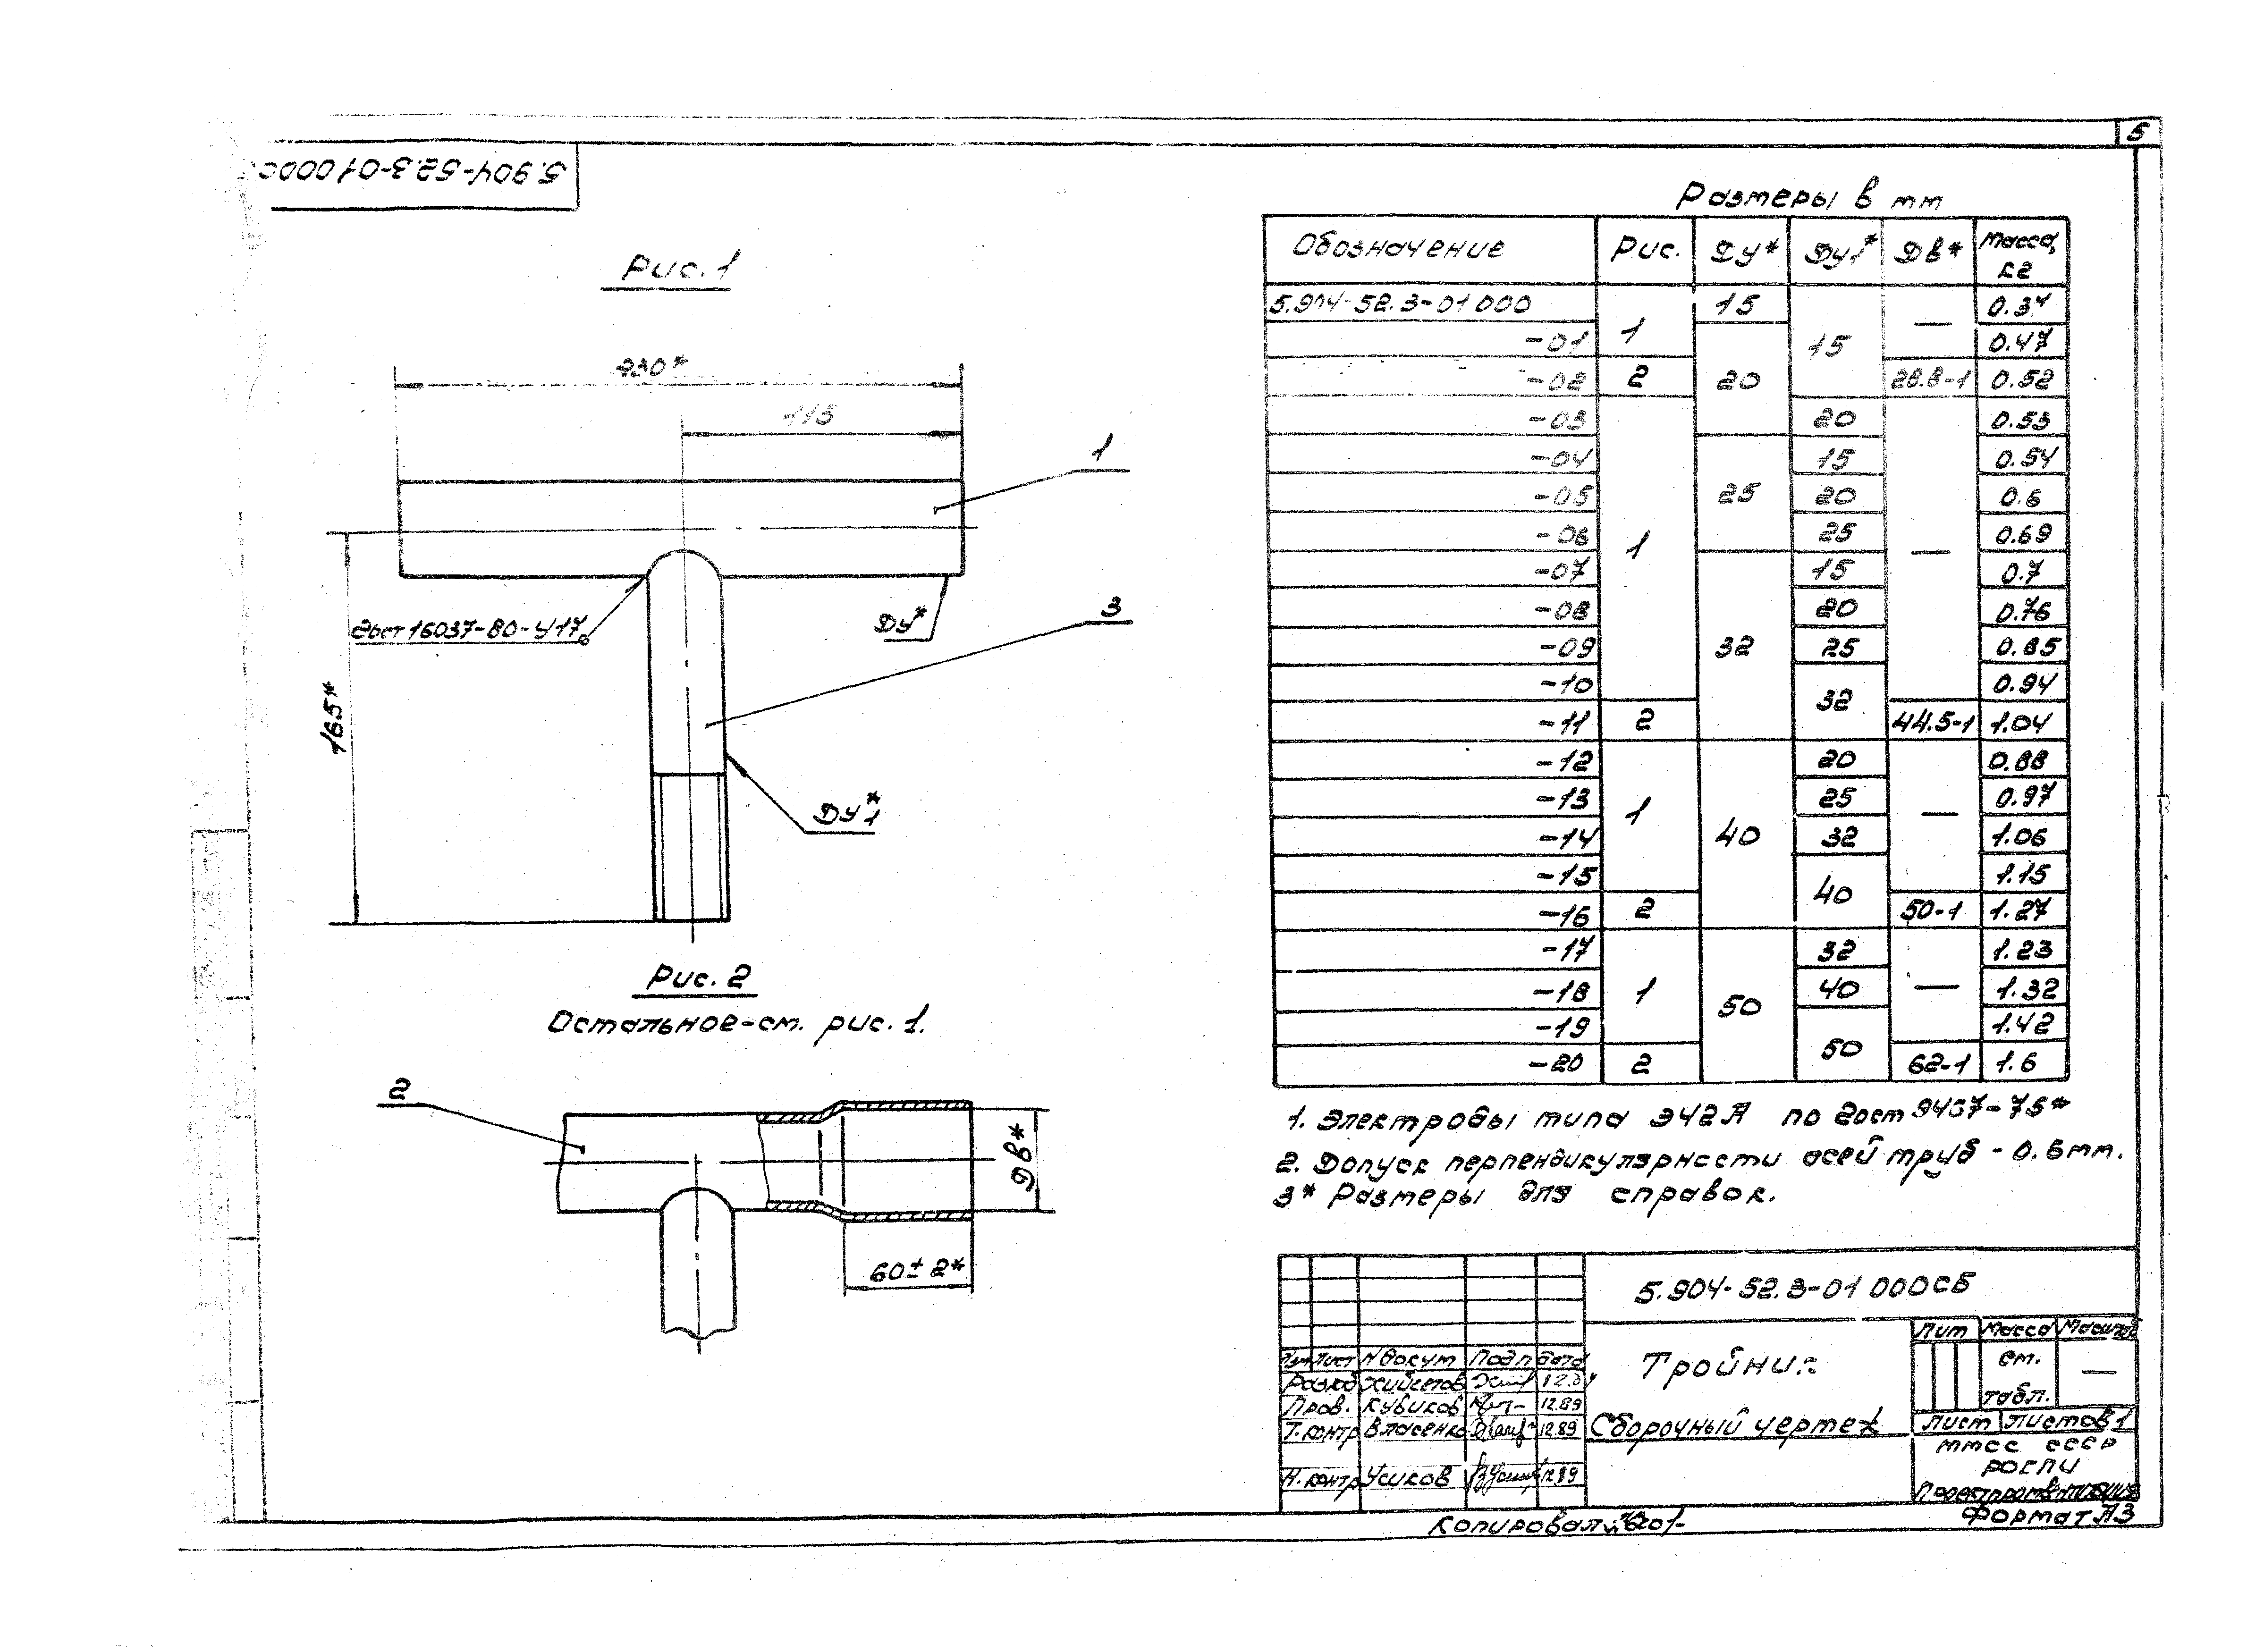 5
5.904-52.3-01 000С
Рис. 1
230*
115
1
гост 16037-80-У17
Ду*
3
165*
Ду1*
Рис. 2
Остальное-см. рис. 1.
2
Дв*
60±2*
Размеры в мм
Обозначение Рис. Ду* Ду1* Дв* Масса, кг
5.904-52.3-01 000 1 15 15 — 0.34
-01 20 0.47
-02 2 28.8-1 0.52
-03 1 20 — 0.53
-04 25 15 0.54
-05 20 0.6
-06 25 0.69
-07 32 15 0.7
-08 20 0.76
-09 25 0.85
-10 32 0.94
-11 2 44.5-1 1.04
-12 1 40 20 — 0.88
-13 25 0.97
-14 32 1.06
-15 40 1.15
-16 2 50-1 1.27
-17 1 50 32 — 1.23
-18 40 1.32
-19 50 1.42
-20 2 62-1 1.6
1. Электроды типа Э42А по гост 9467-75*
2. Допуск перпендикулярности осей труб - 0.6мм.
3* Размеры для справок.
5.904-52.3-01 000СБ
Изм Лист N докум Подп Дата
Разраб
Пров. Кубиков 12.89
Т.контр Власенко 12.89
Н.контр Усиков 12.89
Тройник
Сборочный чертеж
Лит Масса Масштаб
см. табл. —
Лист Листов 1
ММСС СССР
РОСПИ
Проектпромвентиляция
Копировал
Формат А3